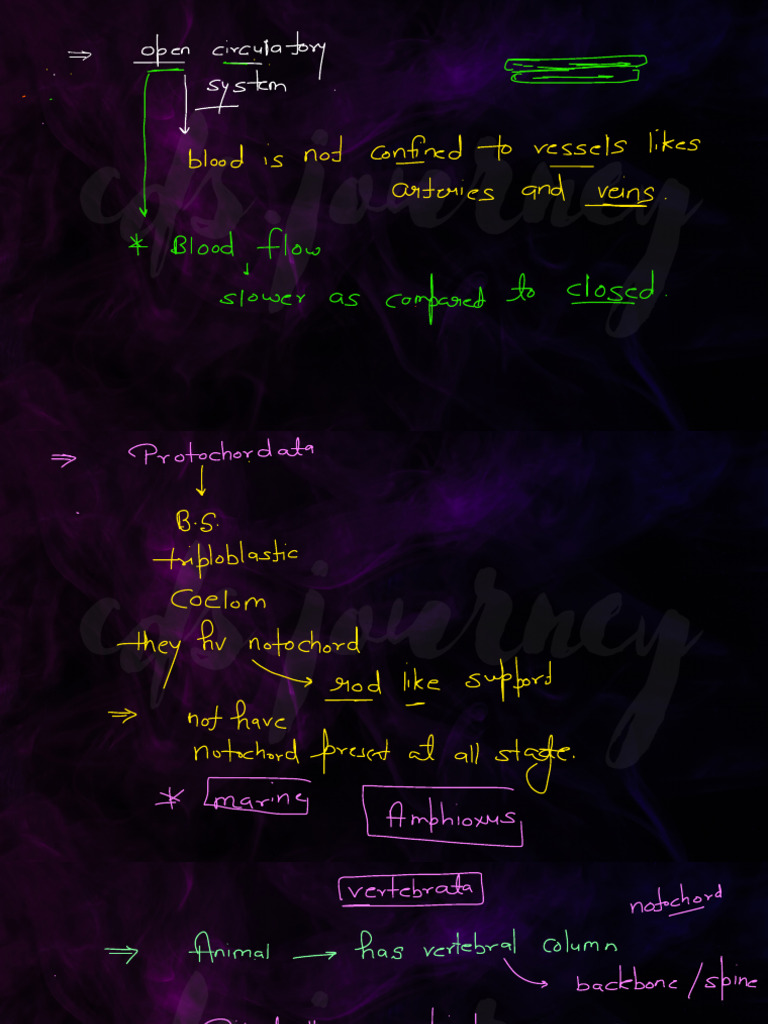 ⇒ open circulatory
system
blood is not confined to vessels likes
arteries and veins.
* Blood flow
slower as compared to closed.
⇒ Protochordata
B.S.
triploblastic
Coelom
they hv notochord
rod like support
⇒ not have
notochord present at all stage.
* marine
Amphioxus
vertebrata
notochord
⇒ Animal → has vertebral column
backbone/spine
cds journey
cds journey